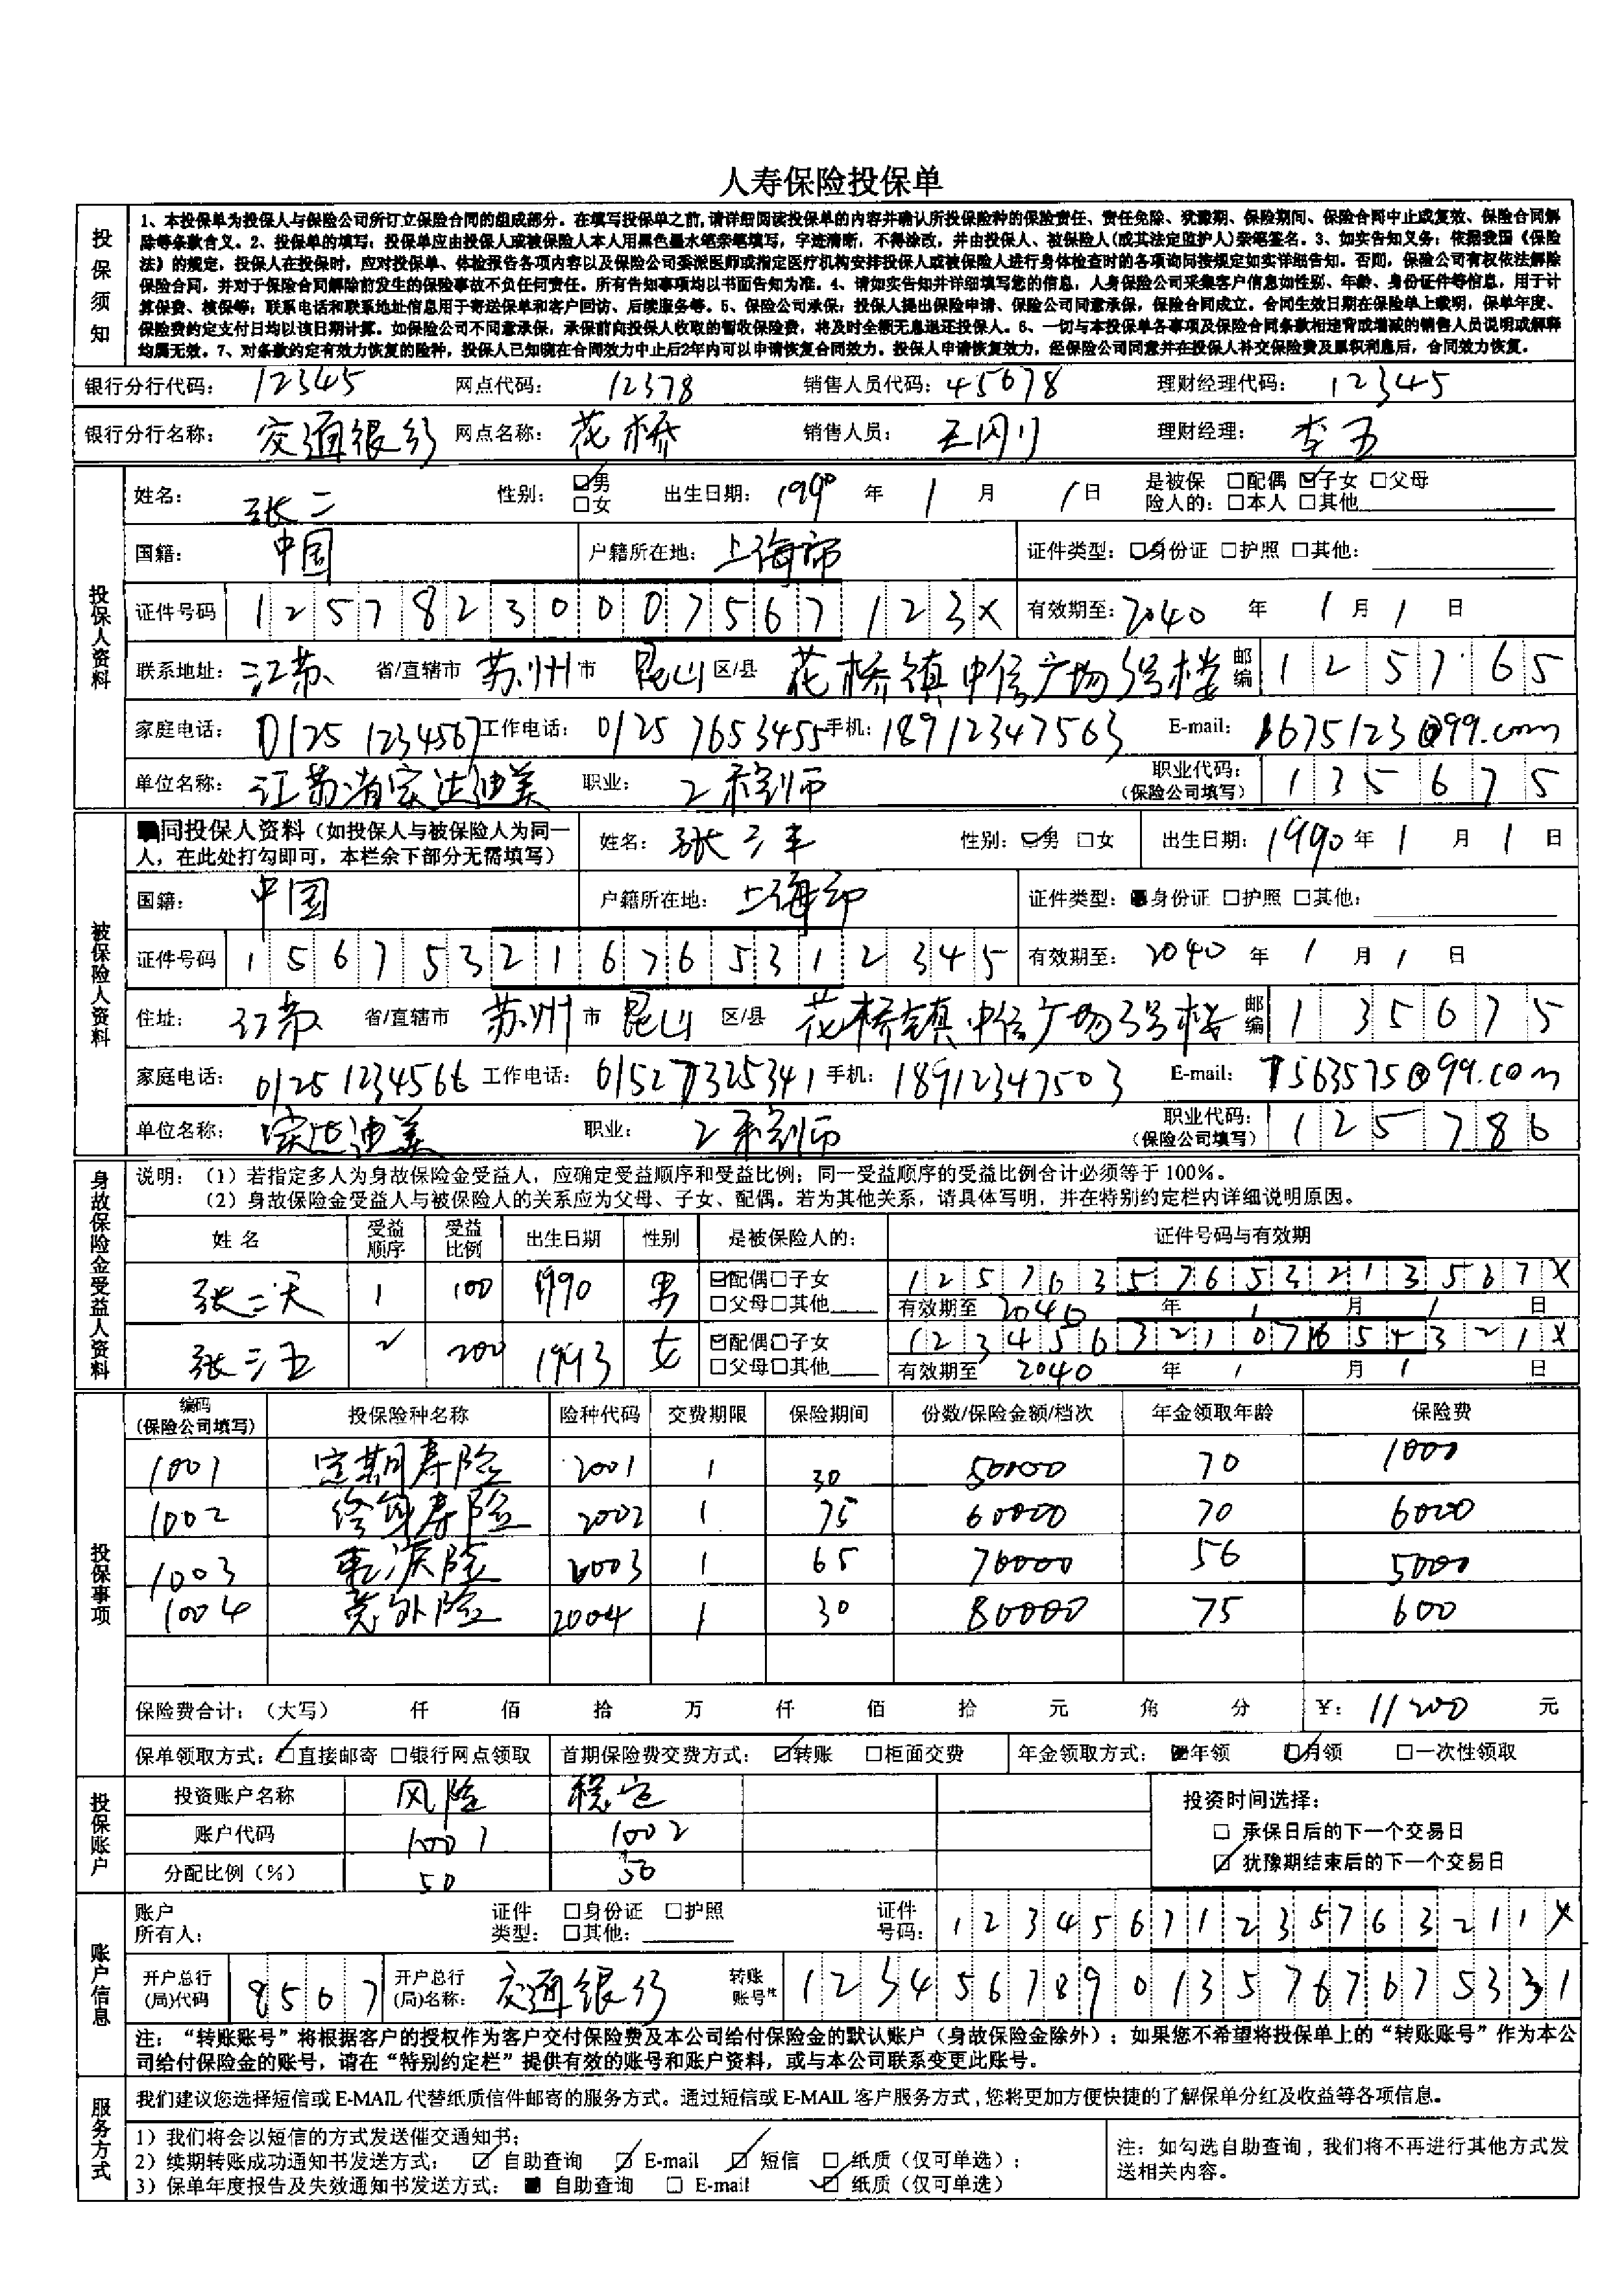 人寿保险投保单
投保须知
1、本投保单为投保人与保险公司所订立保险合同的组成部分。在填写投保单之前,请详细阅读投保单的内容并确认所投保险种的保险责任、责任免除、犹豫期、保险期间、保险合同中止或复效、保险合同解
除等条款含义。2、投保单的填写:投保单应由投保人或被保险人本人用黑色墨水笔亲笔填写,字迹清晰,不得涂改,并由投保人、被保险人(或其法定监护人)亲笔签名。3、如实告知义务:依据我国《保险
法》的规定,投保人在投保时,应对投保单、体检报告各项内容以及保险公司委派医师或指定医疗机构安排投保人或被保险人进行身体检查时的各项询问按规定如实详细告知。否则,保险公司有权依法解除
保险合同,并对于保险合同解除前发生的保险事故不负任何责任。所有告知事项均以书面告知为准。4、请如实告知并详细填写您的信息,人身保险公司采集客户信息如性别、年龄、身份证件等信息,用于计
算保费、核保等;联系电话和联系地址信息用于寄送保单和客户回访、后续服务等。5、保险公司承保:投保人提出保险申请、保险公司同意承保,保险合同成立。合同生效日期在保险单上载明,保单年度、
保险费约定支付日均以该日期计算。如保险公司不同意承保,承保前向投保人收取的暂收保险费,将及时全额无息退还投保人。6、一切与本投保单各事项及保险合同条款相违背或增减的销售人员说明或解释
均属无效。7、对条款约定有效力恢复的险种,投保人已知晓在合同效力中止后2年内可以申请恢复合同效力。投保人申请恢复效力,经保险公司同意并在投保人补交保险费及累积利息后,合同效力恢复。
银行分行代码: 12345 网点代码: 12378 销售人员代码: 45678 理财经理代码: 12345
银行分行名称: 交通银行 网点名称: 花桥 销售人员: 王刚 理财经理: 李五
投保人资料
姓名: 张二 性别: 男 女 出生日期: 1990 年 1 月 1 日 是被保险人的: 配偶 子女 父母 本人 其他
国籍: 中国 户籍所在地: 上海市 证件类型: 身份证 护照 其他:
证件号码 12578230007567123X 有效期至: 2040 年 1 月 1 日
联系地址: 江苏 省/直辖市 苏州 市 昆山 区/县 花桥镇中信广场3号楼 邮编 125765
家庭电话: 0125 1234567 工作电话: 0125 7653455 手机: 18912347563 E-mail: 1675123@99.com
单位名称: 江苏省宏达迪美 职业: 工程师 职业代码: (保险公司填写) 135675
被保险人资料
同投保人资料(如投保人与被保险人为同一人,在此处打勾即可,本栏余下部分无需填写) 姓名: 张三丰 性别: 男 女 出生日期: 1990 年 1 月 1 日
国籍: 中国 户籍所在地: 上海市 证件类型: 身份证 护照 其他:
证件号码 156753216765312345 有效期至: 2040 年 1 月 1 日
住址: 江苏 省/直辖市 苏州 市 昆山 区/县 花桥镇中信广场3号楼 邮编 135675
家庭电话: 0125 1234566 工作电话: 0152 7325341 手机: 18912347503 E-mail: 7563575@99.com
单位名称: 宏达迪美 职业: 工程师 职业代码: (保险公司填写) 125786
身故保险金受益人资料
说明:(1)若指定多人为身故保险金受益人,应确定受益顺序和受益比例;同一受益顺序的受益比例合计必须等于100%。
(2)身故保险金受益人与被保险人的关系应为父母、子女、配偶。若为其他关系,请具体写明,并在特别约定栏内详细说明原因。
姓 名 受益顺序 受益比例 出生日期 性别 是被保险人的: 证件号码与有效期
张二天 1 100 1990 男 配偶 子女 父母 其他 12576357653213567X
有效期至 2040 年 1 月 1 日
张三五 2 200 1993 女 配偶 子女 父母 其他 12345632107654321X
有效期至 2040 年 1 月 1 日
投保事项
编码(保险公司填写) 投保险种名称 险种代码 交费期限 保险期间 份数/保险金额/档次 年金领取年龄 保险费
1001 定期寿险 2001 1 30 50000 70 1000
1002 终身寿险 2002 1 75 60000 70 6000
1003 重疾险 2003 1 65 70000 56 5000
1004 意外险 2004 1 30 80000 75 600
保险费合计:(大写) 仟 佰 拾 万 仟 佰 拾 元 角 分 ¥: 11200 元
保单领取方式: 直接邮寄 银行网点领取 首期保险费交费方式: 转账 柜面交费 年金领取方式: 年领 月领 一次性领取
投保账户
投资账户名称 风险 稳定 投资时间选择:
账户代码 1001 1002 承保日后的下一个交易日
分配比例(%) 50 50 犹豫期结束后的下一个交易日
账户信息
账户所有人: 证件类型: 身份证 护照 其他: 证件号码: 12345671235763211X
开户总行(局)代码 8567 开户总行(局)名称: 交通银行 转账账号 1234567890135767675331
注:“转账账号”将根据客户的授权作为客户交付保险费及本公司给付保险金的默认账户(身故保险金除外);如果您不希望将投保单上的“转账账号”作为本公
司给付保险金的账号,请在“特别约定栏”提供有效的账号和账户资料,或与本公司联系变更此账号。
服务方式
我们建议您选择短信或E-MAIL代替纸质信件邮寄的服务方式。通过短信或E-MAIL客户服务方式,您将更加方便快捷的了解保单分红及收益等各项信息。
1)我们将会以短信的方式发送催交通知书;
2)续期转账成功通知书发送方式: 自助查询 E-mail 短信 纸质(仅可单选);
3)保单年度报告及失效通知书发送方式: 自助查询 E-mail 纸质(仅可单选)
注:如勾选自助查询,我们将不再进行其他方式发
送相关内容。